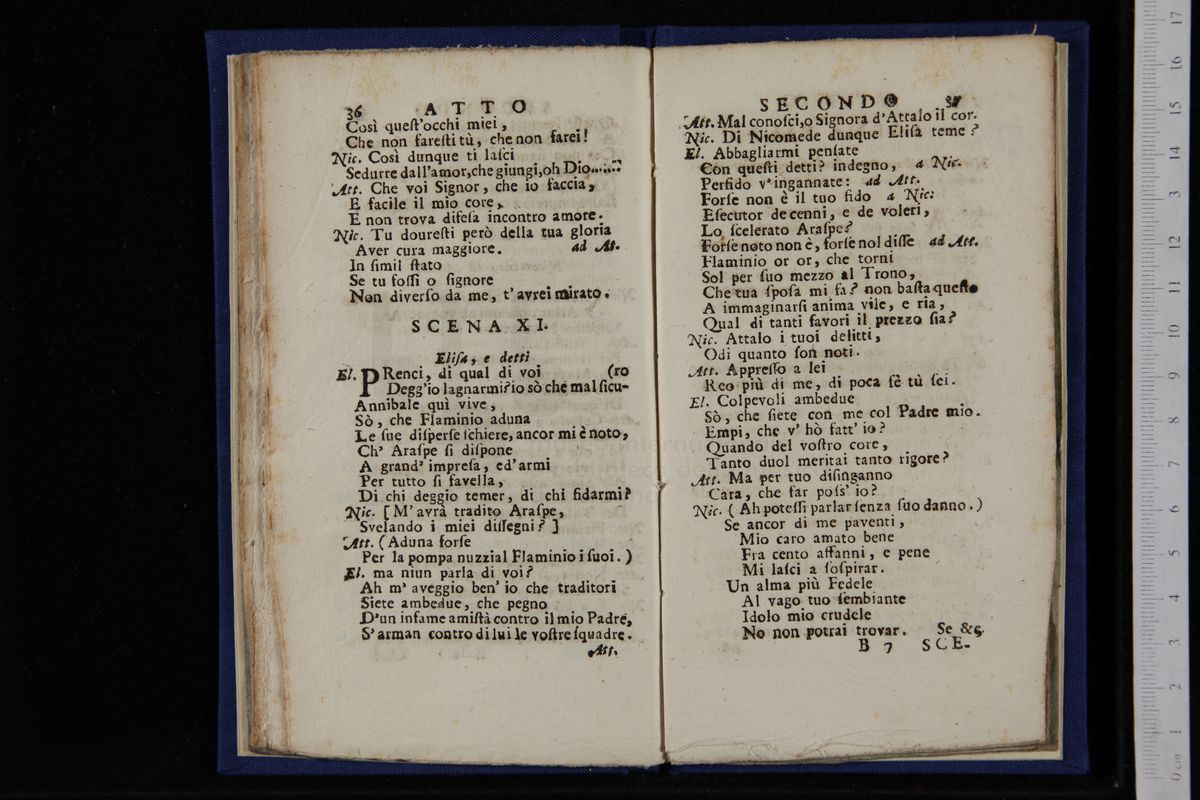 36 ATTO
Così quest'occhi miei,
Che non faresti tù, che non farei!
Nic. Così dunque ti lasci
Sedurre dall'amor, che giungi, oh Dio......?
Att. Che voi Signor, che io faccia,
E facile il mio core,
E non trova difesa incontro amore.
Nic. Tu douresti però della tua gloria
Aver cura maggiore. ad At.
In simil stato
Se tu fossi o signore
Non diverso da me, t'avrei mirato.
SCENA XI.
Elisa, e detti
El. PRenci, di qual di voi (ro
Degg'io lagnarmi? io sò che mal sicu-
Annibale quì vive,
Sò, che Flaminio aduna
Le sue disperse schiere, ancor mi è noto,
Ch' Araspe si dispone
A grand' impresa, ed'armi
Per tutto si favella,
Di chi deggio temer, di chi fidarmi?
Nic. [ M'avrà tradito Araspe,
Svelando i miei dissegni? ]
Att. ( Aduna forse
Per la pompa nuzzial Flaminio i suoi. )
El. ma niun parla di voi?
Ah m' aveggio ben' io che traditori
Siete ambedue, che pegno
D'un infame amistà contro il mio Padre,
S'arman contro di lui le vostre squadre.
Att.
SECONDO 37
Att. Mal conosci, o Signora d'Attalo il cor.
Nic. Di Nicomede dunque Elisa teme?
El. Abbagliarmi pensate
Con questi detti? indegno, a Nic.
Perfido v'ingannate: ad Att.
Forse non è il tuo fido a Nic:
Esecutor de cenni, e de voleri,
Lo scelerato Araspe?
Forse noto non è, forse nol disse ad Att.
Flaminio or or, che torni
Sol per suo mezzo al Trono,
Che tua sposa mi fa? non basta questo
A immaginarsi anima vile, e ria,
Qual di tanti favori il prezzo sia?
Nic. Attalo i tuoi delitti,
Odi quanto son noti.
Att. Appresso a lei
Reo più di me, di poca fè tù sei.
El. Colpevoli ambedue
Sò, che siete con me col Padre mio.
Empi, che v' hò fatt' io?
Quando del vostro core,
Tanto duol meritai tanto rigore?
Att. Ma per tuo disinganno
Cara, che far poss' io?
Nic. ( Ah potessi parlar senza suo danno. )
Se ancor di me paventi,
Mio caro amato bene
Fra cento affanni, e pene
Mi lasci a sospirar.
Un alma più Fedele
Al vago tuo sembiante
Idolo mio crudele
No non potrai trovar. Se &c.
B 7 SCE-